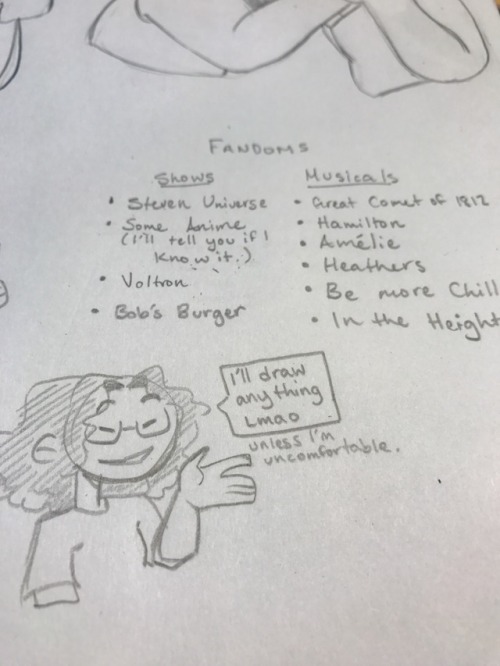 FANDOMS
Shows
• Steven Universe
• Some Anime
(I'll tell you if I
know it.)
• Voltron
• Bob's Burger
Musicals
• Great Comet of 1812
• Hamilton
• Amélie
• Heathers
• Be more Chill
• In the Height
I'll draw
anything
Lmao
unless I'm
uncomfortable.